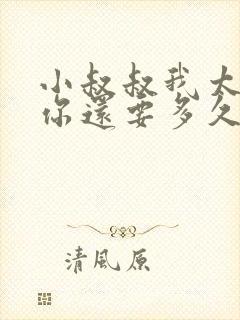 小叔叔我太
你還要多久
清風原